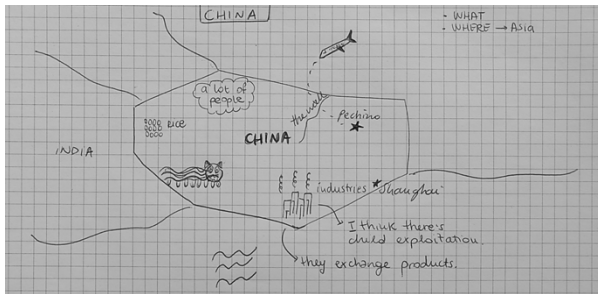 CHINA
- WHAT
- WHERE → Asia
a lot of
people
the wall
Pechino
RICE
CHINA
INDIA
industries
Shanghai
I think there's
child exploitation.
they exchange products.